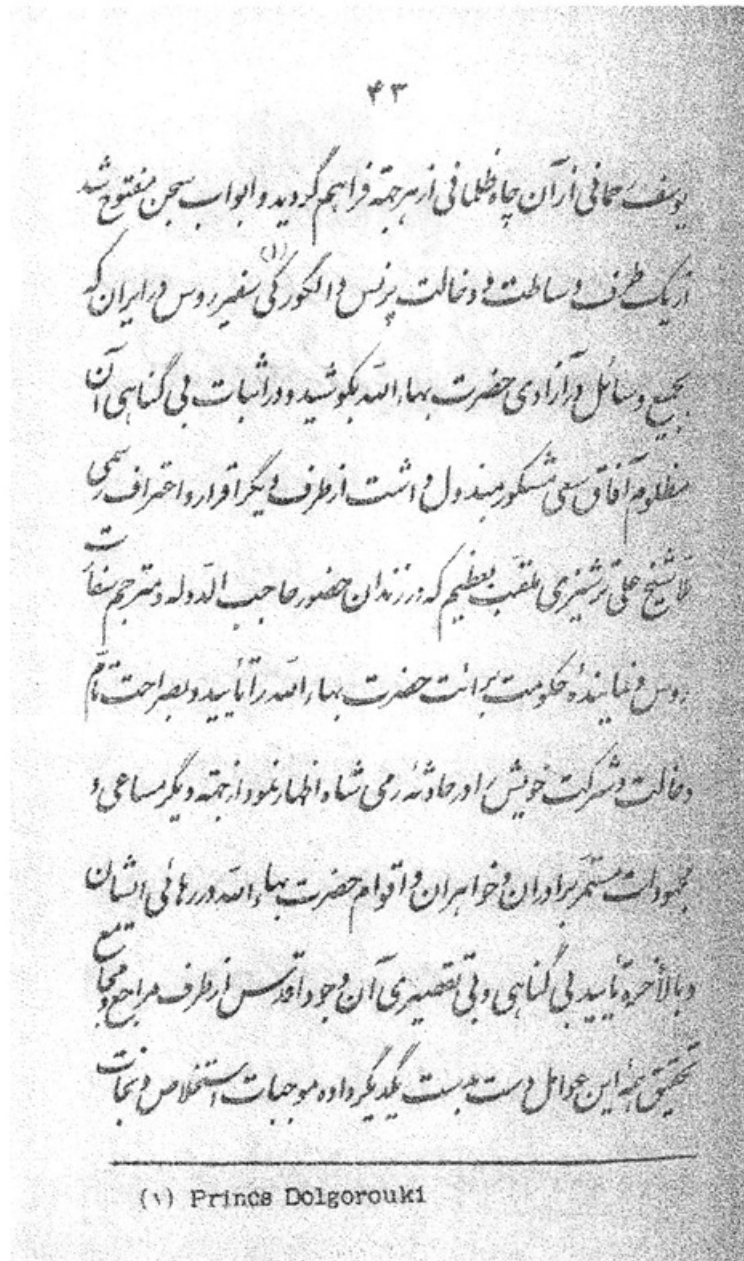 ۴۳
یوسف رحمانی از آن چاه ظلمانی از هر جهة فراهم گردید و ابواب سجن مفتوح شد
از یک طرف وساطت و دخالت پرنس دالگورکی (۱) سفیر روس در ایران که
بجمیع وسائل در آزادی حضرت بهاءالله بکوشید و در اثبات بی گناهی آن
مظلوم آفاق سعی مشکور مبذول داشت از طرف دیگر اقرار و اعتراف رسمی
ملا شیخ علی ترشیزی ملقب بعظیم که در زندان حضور حاجب الدوله و مترجم سفارت
روس و نمایندهٔ حکومت برائت حضرت بهاءالله را تأیید و بصراحت تام
دخالت و شرکت خویش را در حادثهٔ رمی شاه اظهار نمود از جهة دیگر مساعی و
مجهودات مستمر برادران و خواهران و اقوام حضرت بهاءالله در رهائی ایشان
و بالأخره تأیید بی گناهی و بی تقصیری آن وجود اقدس از طرف مراجع و مجامع
تحقیق همهٔ این عوامل دست بدست یکدیگر داده موجبات استخلاص و نجات
(۱) Prince Dolgorouki